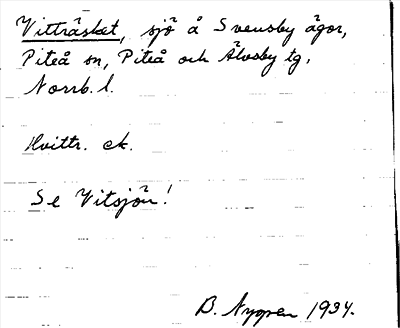 Vitträsket, sjö å Svensby ägor,
Piteå sn, Piteå och Älvsby tg.
Norrb. l.
Hvittr. ek.
Se Vitsjön!
B. Nygren 1934.